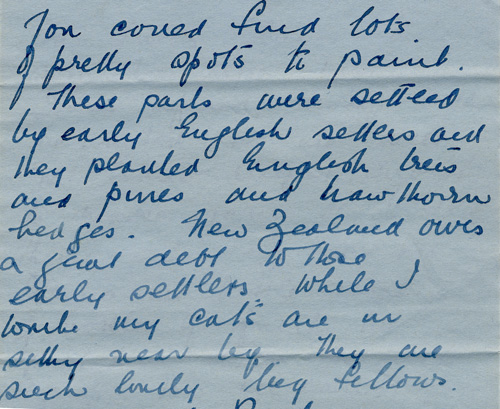 You could find lots
of pretty spots to paint.
These parts were settled
by early English settlers and
they planted English trees
and pines and hawthorn
hedges. New Zealand owes
a great debt to those
early settlers. While I
write my cats are in
sitting near by. They are
such lovely big fellows.